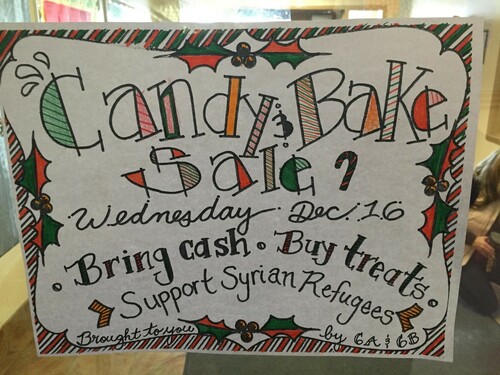 Candy & Bake
Sale
Wednesday Dec. 16
• Bring cash • Buy treats •
Support Syrian Refugees
Brought to you by 6A & 6B